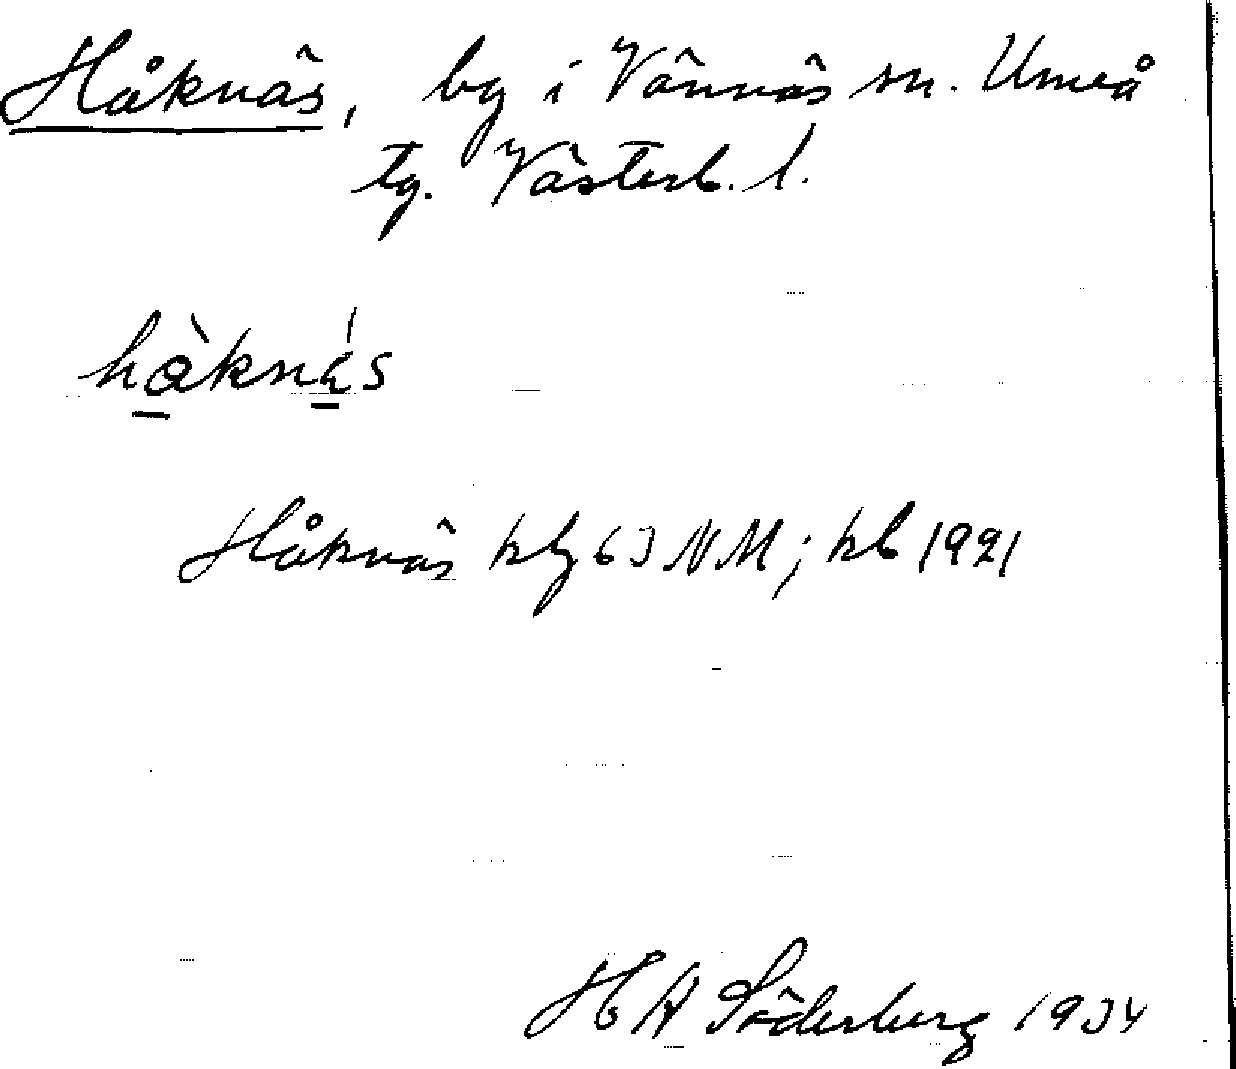 Håknäs, by i Vännäs sn. Umeå
tg. Västerb. l.
håknäs
Håknäs kbg 63 NM; kb 1921
H A Söderberg 1934